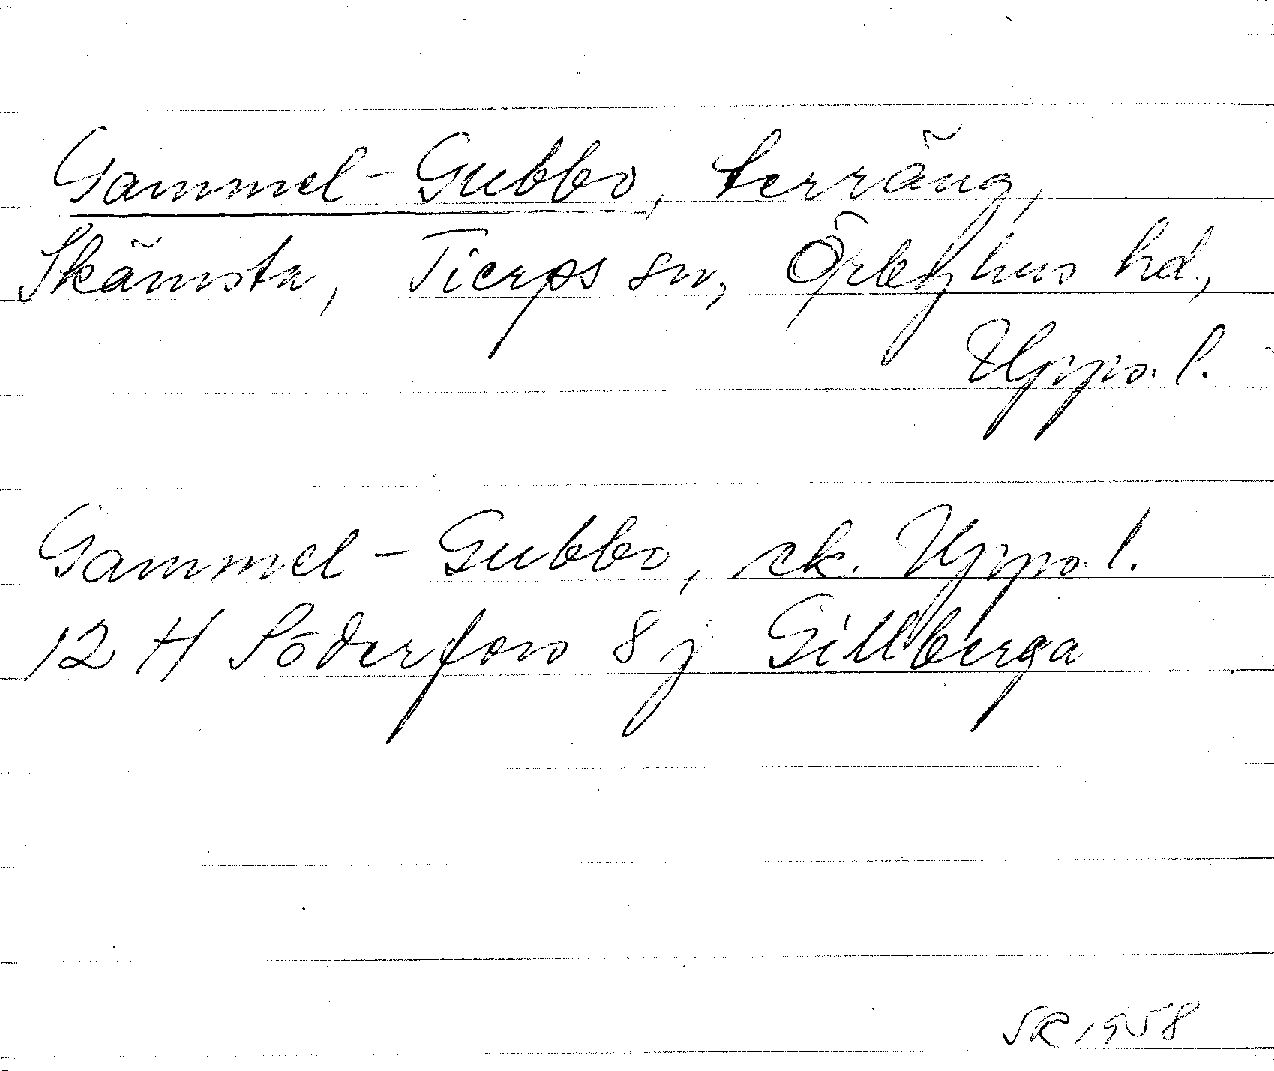 Gammel-Gubbo, terräng,
Skämsta, Tierps sn, Örbyhus hd,
Upps. l.
Gammel-Gubbo, ek. Upps. l.
12 H Söderfors 8 j Gillberga
SR 1958